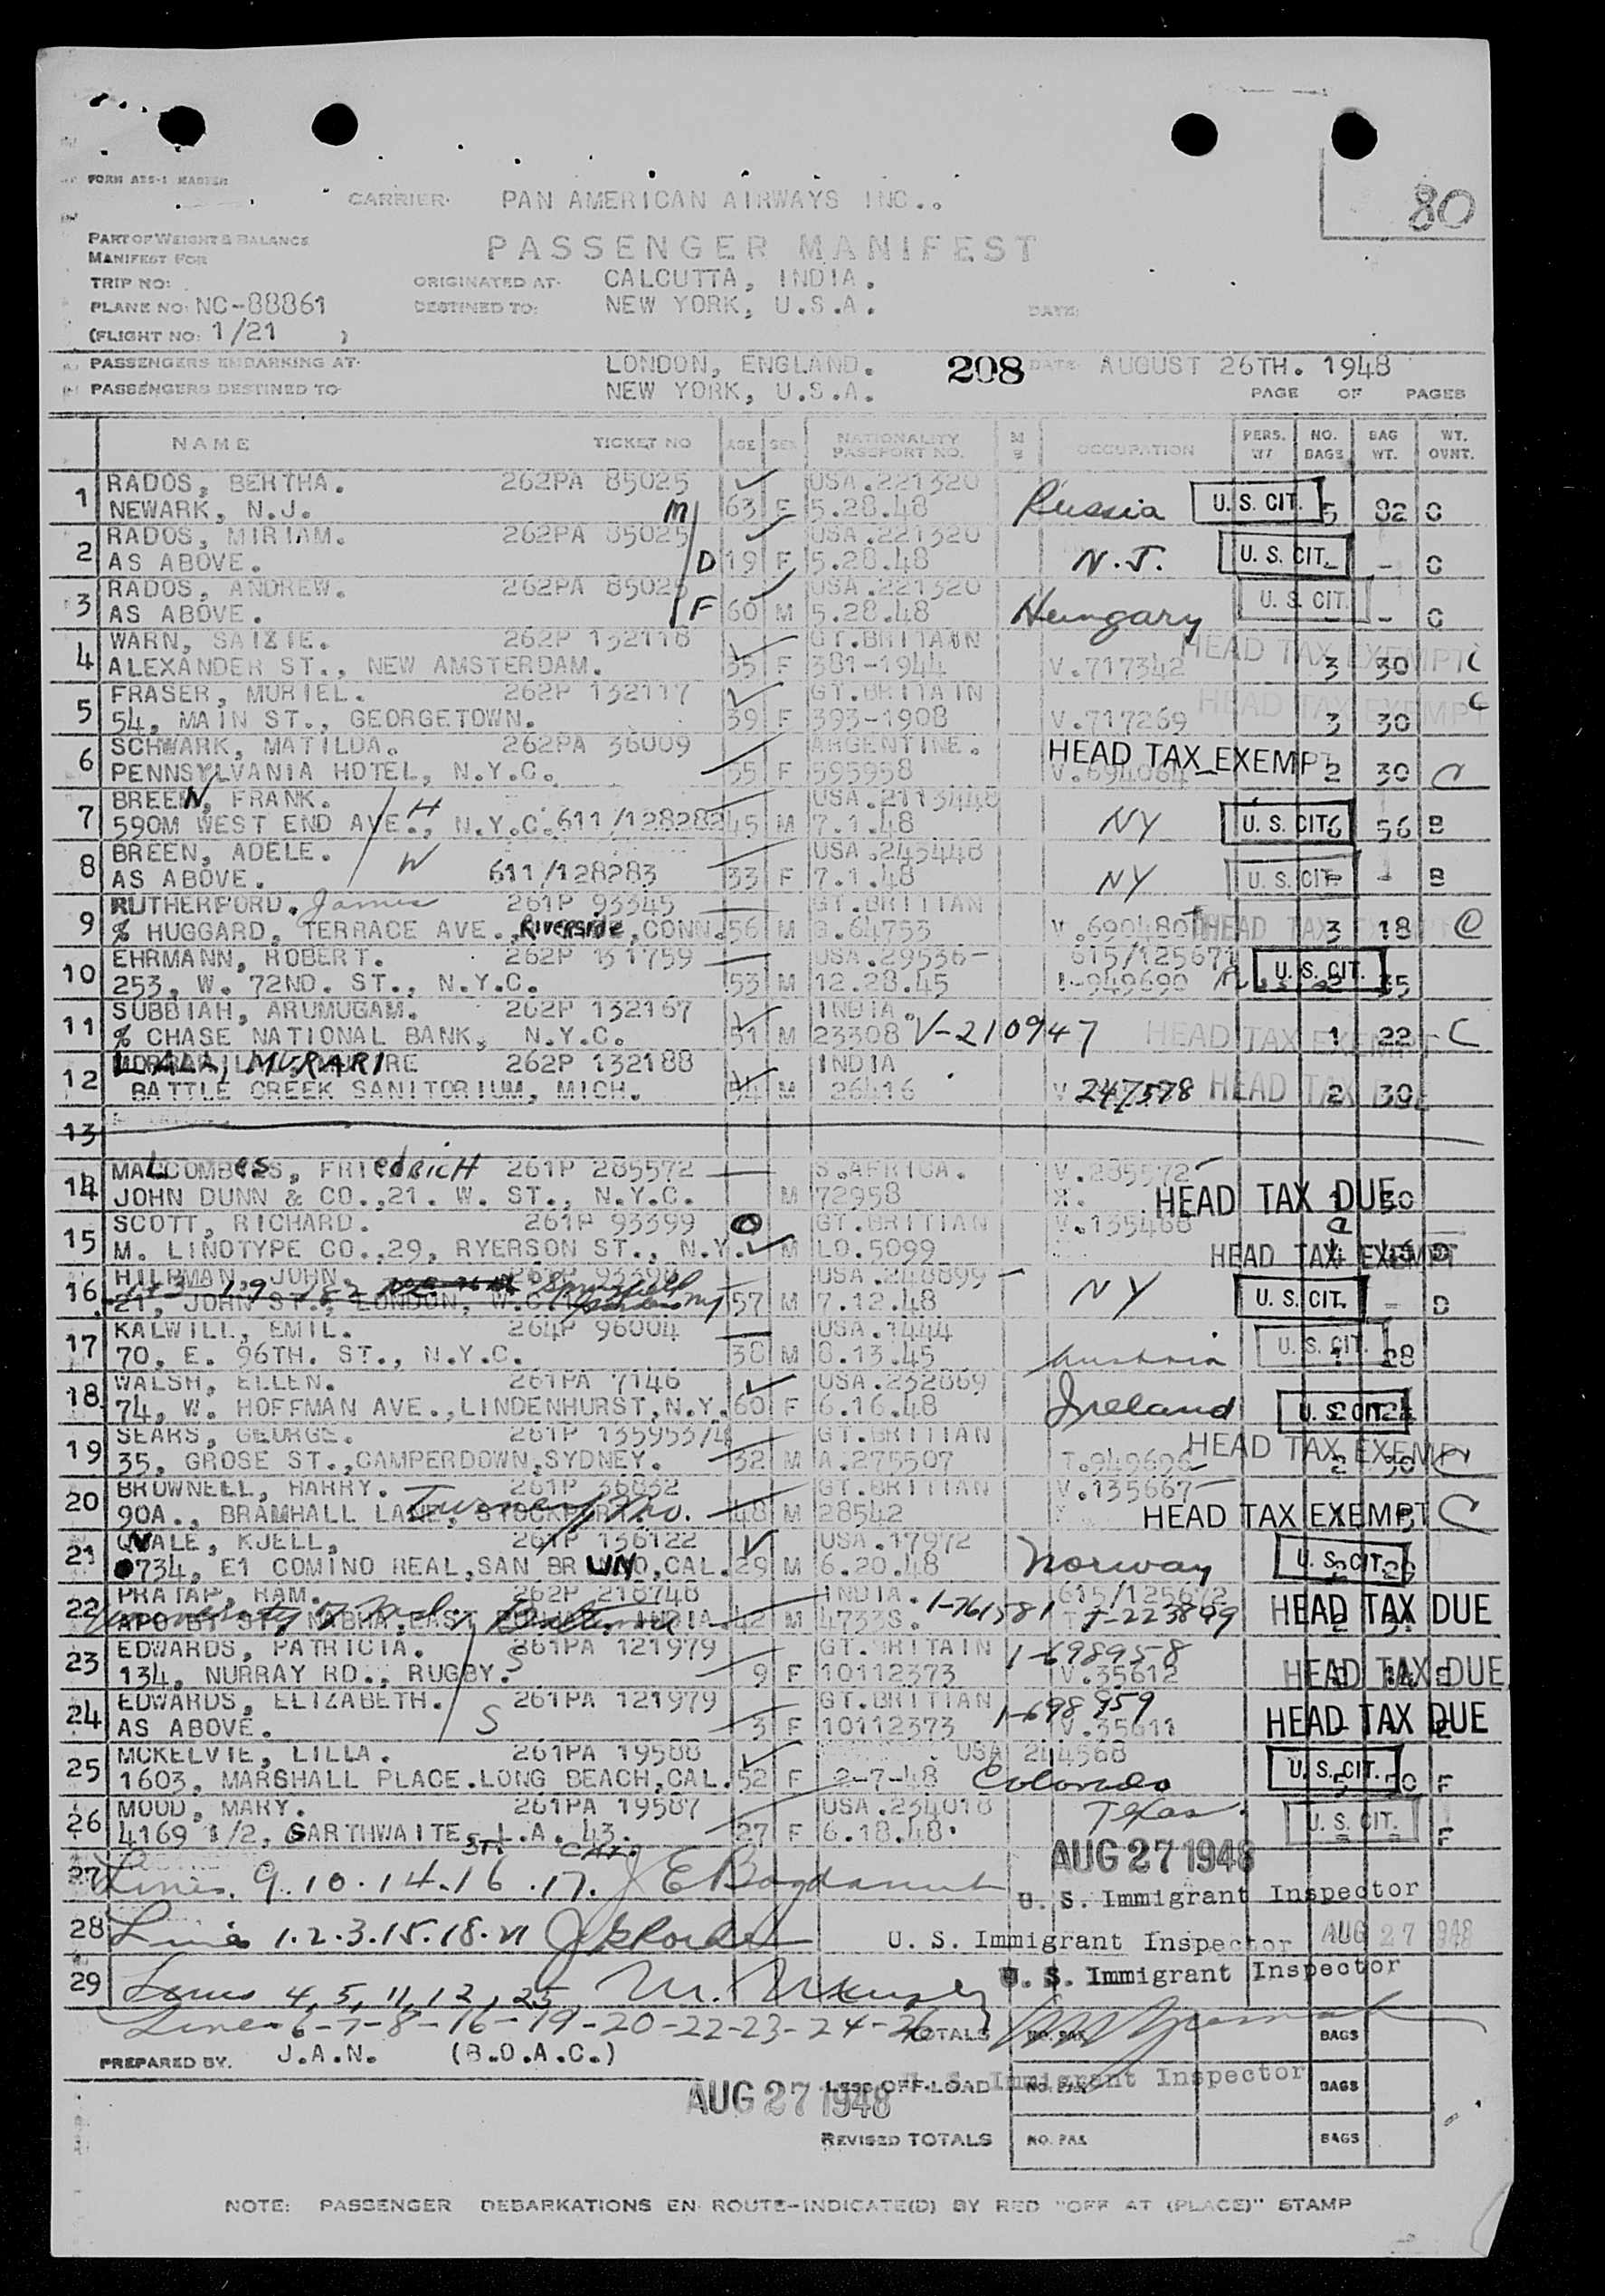 FORM ABS-1 MASTER
CARRIER· PAN AMERICAN AIRWAYS INC..
80
PART OF WEIGHT & BALANCE
PASSENGER MANIFEST
MANIFEST FOR
TRIP NO: ORIGINATED AT· CALCUTTA, INDIA.
PLANE NO: NC-88861 DESTINED TO: NEW YORK, U.S.A. DATE:
(FLIGHT NO: 1/21 )
PASSENGERS EMBARKING AT· LONDON, ENGLAND. 208 DATE· AUGUST 26TH. 1948
PASSENGERS DESTINED TO NEW YORK, U.S.A. PAGE OF PAGES
NAME TICKET NO AGE SEX NATIONALITY PASSPORT NO. OCCUPATION PERS. WT NO. BAGS BAG WT. WT. OVNT.
1 RADOS, BERTHA. 262PA 85025 USA.221320
NEWARK, N.J. M 63 F 5.28.48 Russia U.S. CIT. 5 82 C
2 RADOS, MIRIAM. 262PA 85025 USA.221320
AS ABOVE. D 19 F 5.28.48 N.J. U.S. CIT. - - C
3 RADOS, ANDREW. 262PA 85025 USA.221320
AS ABOVE. F 60 M 5.28.48 Hungary U.S. CIT. - - C
4 WARN, SAIZIE. 262P 132116 GT.BRITAIN
ALEXANDER ST., NEW AMSTERDAM. 35 F 381-1944 V.717342 HEAD TAX EXEMPT 3 30 C
5 FRASER, MURIEL. 262P 132117 GT.BRITAIN
54, MAIN ST., GEORGETOWN. 39 F 393-1908 V.717269 HEAD TAX EXEMPT 3 30 C
6 SCHWARK, MATILDA. 262PA 36009 ARGENTINE.
PENNSYLVANIA HOTEL, N.Y.C. 55 F 595958 V.694064 HEAD TAX EXEMPT 2 30 C
7 BREEN, FRANK. H USA.2113448
590M WEST END AVE., N.Y.C. 611/128282 45 M 7.1.48 NY U.S. CIT. 6 56 B
8 BREEN, ADELE. USA.245448
AS ABOVE. W 611/128283 33 F 7.1.48 NY U.S. CIT. - - B
9 RUTHERFORD. James 261P 93345 GT.BRITIAN
% HUGGARD, TERRACE AVE., Riverside, CONN. 56 M B.64753 V.690480 HEAD TAX 3 18 C
10 EHRMANN, ROBERT. 262P 131759 USA.29536- 615/125671
253, W. 72ND. ST., N.Y.C. 53 M 12.28.45 1-949690 U.S. CIT. 2 35
11 SUBBIAH, ARUMUGAM. 262P 132167 INDIA.
% CHASE NATIONAL BANK, N.Y.C. 51 M 23308 V-210947 HEAD TAX EXEMPT 1 22 C
12 LALL, MURARI 262P 132188 INDIA
BATTLE CREEK SANITORIUM, MICH. 54 M 26416 V 247578 HEAD TAX DUE 2 30
13
14 MALCOMBES, FRIEDRICH 261P 285572 S.AFRICA. V.285572
JOHN DUNN & CO.,21. W. ST., N.Y.C. M 72958 X. HEAD TAX DUE 1 50
15 SCOTT, RICHARD. 261P 93399 GT.BRITIAN V.135468
M. LINOTYPE CO.,29, RYERSON ST., N.Y. M LO.5099 HEAD TAX EXEMPT
16 HILPMAN, JOHN. 261P 93398 USA.248899
21, JOHN ST., LONDON, W.C. Springfield 57 M 7.12.48 NY U.S. CIT. - D
17 KALWILL, EMIL. 264P 96004 USA.1444
70, E. 96TH. ST., N.Y.C. 38 M 8.13.45 Austria U.S. CIT. 28
18 WALSH, ELLEN. 261PA 7146 USA.232869
74, W. HOFFMAN AVE.,LINDENHURST,N.Y. 60 F 6.16.48 Ireland U.S. CIT. 2 24
19 SEARS, GEORGE. 261P 135953/4 GT.BRITIAN
35, GROSE ST.,CAMPERDOWN,SYDNEY. 32 M A.275507 T.949696 HEAD TAX EXEMPT 2 30 C
20 BROWNELL, HARRY. 261P 36832 GT.BRITIAN V.135667
90A., BRAMHALL LANE, STOCKPORT. Turney, Mo. 48 M 28542 HEAD TAX EXEMPT C
21 QVALE, KJELL, 261P 136122 USA.17972
734, E1 COMINO REAL,SAN BRUNO,CAL. 29 M 6.20.48 Norway U.S. CIT. 29
22 PRATAP, RAM. 262P 218748 INDIA. 1-761581 615/125672
University of INDIA. 42 M 4733S. T-223899 HEAD TAX DUE
23 EDWARDS, PATRICIA. 261PA 121979 GT.BRITAIN 1-698958
134, NURRAY RD., RUGBY. S 9 F 10112373 V.35612 HEAD TAX DUE
24 EDWARDS, ELIZABETH. 261PA 121979 GT.BRITIAN 1-698959
AS ABOVE. S 3 F 10112373 V.35611 HEAD TAX DUE
25 MCKELVIE, LILLA. 261PA 19588 USA 244568
1603, MARSHALL PLACE.LONG BEACH,CAL. 52 F 2-7-48 Colorado U.S. CIT. 5 50 F
26 MOOD, MARY. 261PA 19587 USA.234018
4169 1/2, GARTHWAITE, L.A. 43. 27 F 6.18.48. Texas. U.S. CIT. - - F
ST. CAL.
AUG 27 1948
27 Lines 9.10.14.16.17.
U. S. Immigrant Inspector
28 Lines 1.2.3.15.18.21 U. S. Immigrant Inspector AUG 27 1948
29 Lines 4, 5, 11, 12, 25 U. S. Immigrant Inspector
Lines 6-7-8-16-19-20-22-23-24-26 TOTALS NO. PAX BAGS
PREPARED BY. J.A.N. (B.O.A.C.)
AUG 27 1948 LESS OFF-LOAD NO. PAX Immigrant Inspector BAGS
REVISED TOTALS NO. PAX BAGS
NOTE: PASSENGER DEBARKATIONS EN ROUTE-INDICATE(D) BY RED "OFF AT (PLACE)" STAMP